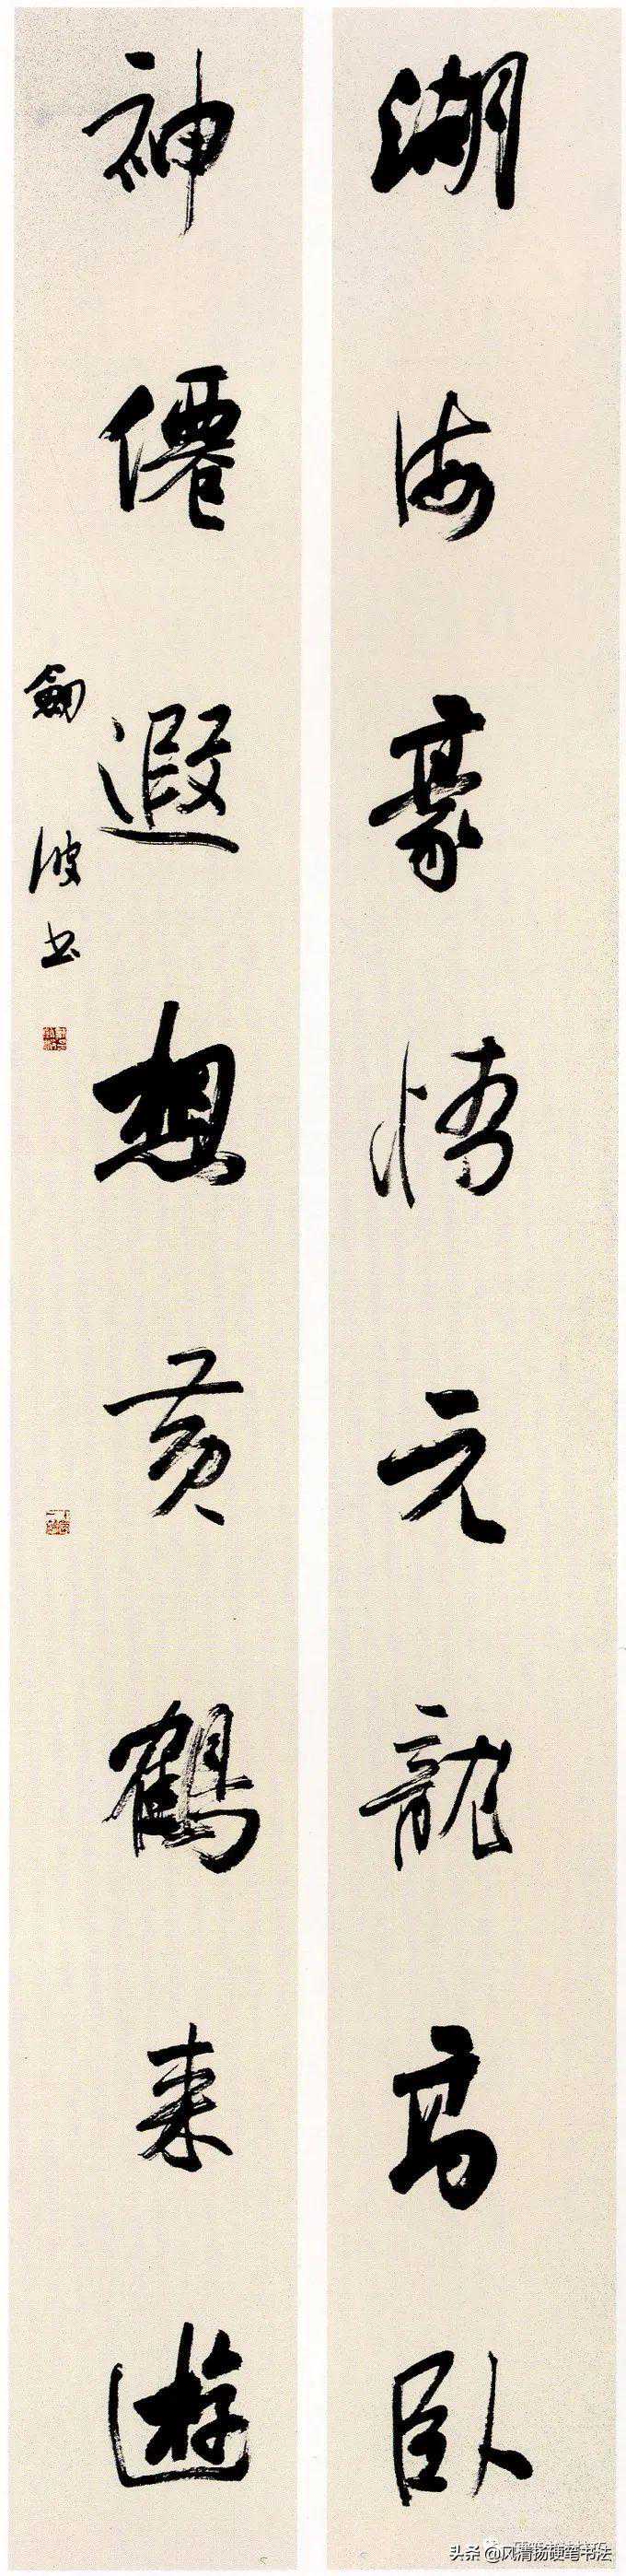 湖海豪情元龍高臥
神僊遐想黄鶴来遊
劍波书
头条 @风清扬硬笔书法